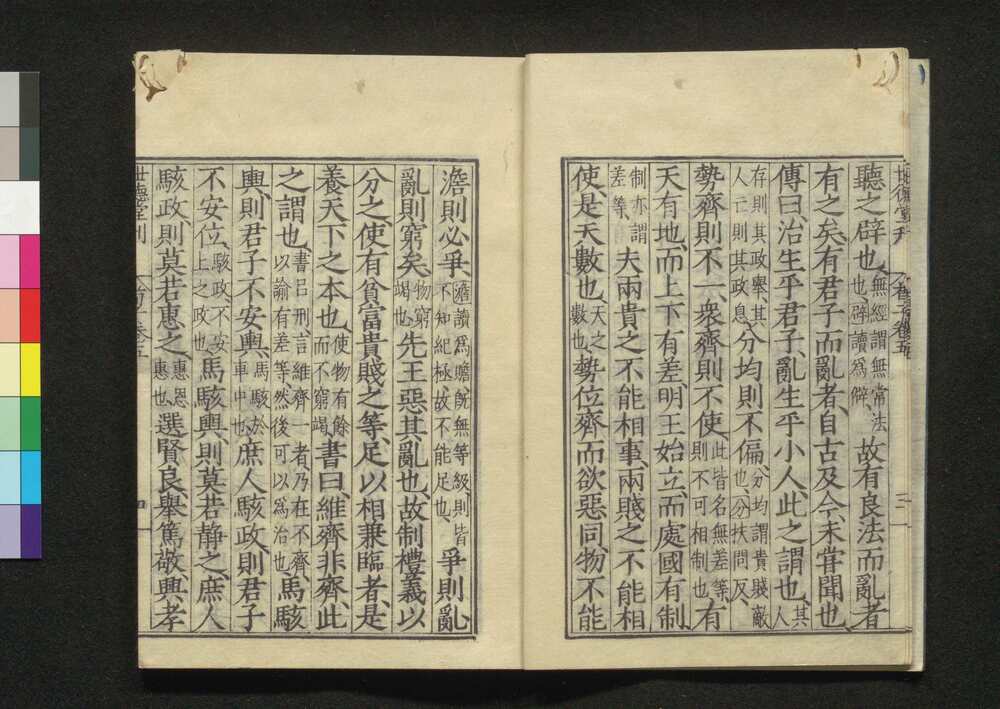 聽之辟也、無經謂無常法也、辟讀爲僻、故有良法而亂者
有之矣、有君子而亂者、自古及今、未甞聞也、
傳曰、治生乎君子、亂生乎小人、此之謂也、其人
存則其政舉、其人亡則其政息、分均則不偏、分均謂貴賤敵也、分扶問反、
勢齊則不一、衆齊則不使、此皆名無差等、則不可相制也、有
天有地、而上下有差、明王始立、而處國有制、
制亦謂差等、夫兩貴之不能相事、兩賤之不能相
使、是天數也、天之數也、勢位齊而欲惡同、物不能
澹則必爭、澹讀爲贍、旣無等級、則皆不知紀極、故不能足也、爭則亂、
亂則窮矣、物窮竭也、先王惡其亂也、故制禮義以
分之、使有貧富貴賤之等、足以相兼臨者、是
養天下之本也、使物有餘而不窮竭、書曰、維齊非齊、此
之謂也、書呂刑、言維齊一者、乃在不齊、以諭有差等、然後可以爲治也、馬駭
輿、則君子不安輿、馬駭於車中也、庶人駭政、則君子
不安位、駭政、不安上之政也、馬駭輿、則莫若靜之、庶人
駭政、則莫若惠之、惠恩惠也、選賢良、舉篤敬、興孝
世德堂刊